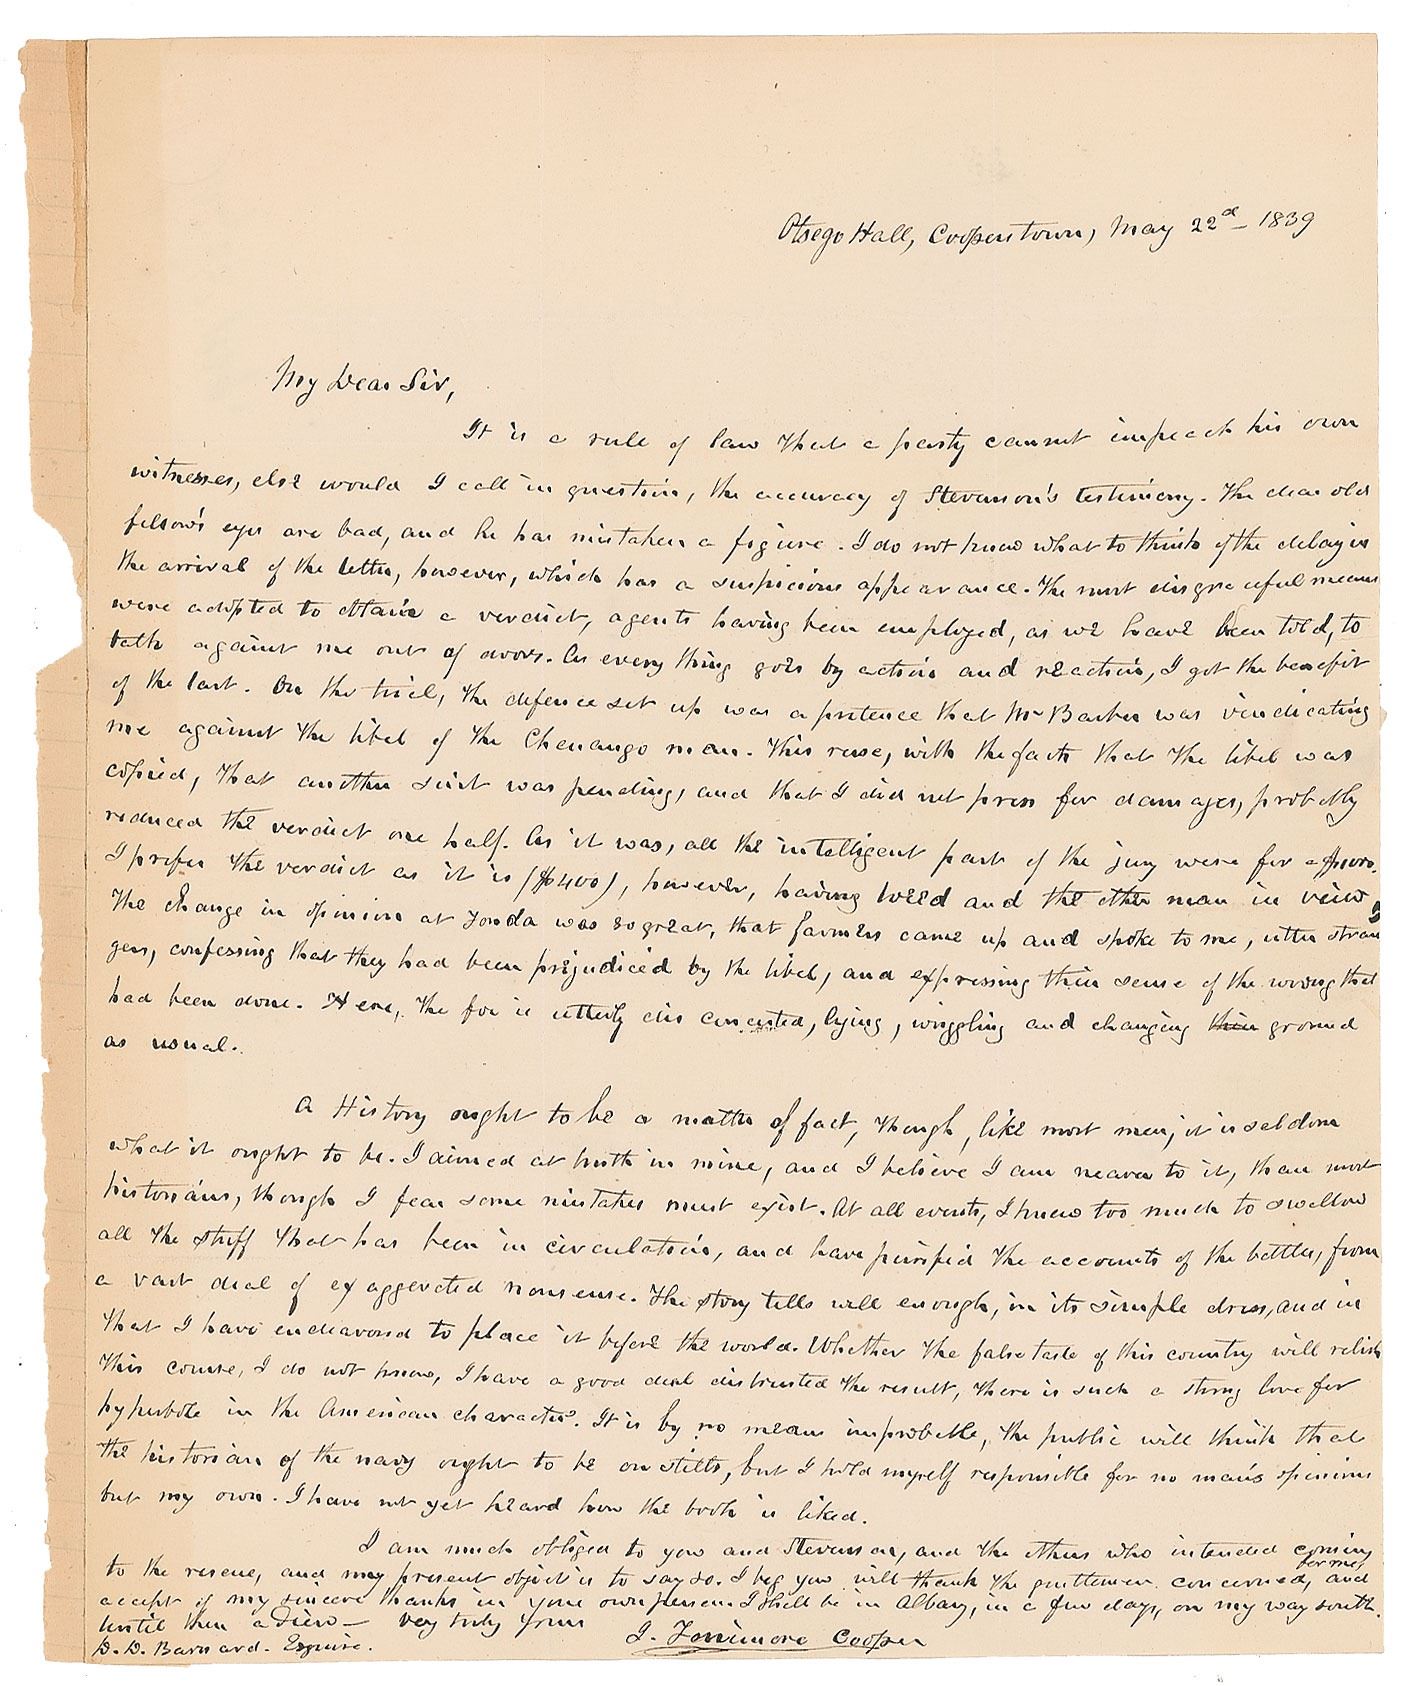 Otsego Hall, Cooperstown, May 22d - 1839
My Dear Sir,
It is a rule of law that a party cannot impeach his own
witnesses, else would I call in question, the accuracy of Stevenson's testimony. The dear old
fellow's eyes are bad, and he has mistaken a figure. I do not know what to think of the delay in
the arrival of the letter, however, which has a suspicious appearance. The most disgraceful means
were adopted to obtain a verdict, agents having been employed, as we have been told, to
talk against me out of doors. As every thing goes by action and reaction, I got the benefit
of the last. On the trial, the defence set up was a pretence that Mr Barber was vindicating
me against the libel of the Chenango man. This ruse, with the facts that the libel was
copied, that another suit was pending, and that I did not press for damages, probably
reduced the verdict one half. As it was, all the intelligent part of the jury were for
I prefer the verdict as it is ($400), however, having Weed and the other man in view
The change in opinion at Fonda was so great, that farmers came up and spoke to me, utter stran
gers, confessing that they had been prejudiced by the libel, and expressing their sense of the wrong that
had been done. Here, the foe is utterly disconcerted, lying, wriggling and changing their ground
as usual.
A History ought to be a matter of fact, though, like most men, it is seldom
what it ought to be. I aimed at truth in mine, and I believe I am nearer to it, than most
historians, though I fear some mistakes must exist. At all events, I knew too much to swallow
all the stuff that has been in circulation, and have purified the accounts of the battles, from
a vast deal of exaggerated nonsense. The story tells well enough, in its simple dress, and in
that I have endeavored to place it before the world. Whether the false taste of this country will relish
this course, I do not know, I have a good deal distrusted the result, there is such a strong love for
hyperbole in the American character. It is by no means improbable, the public will think that
the historian of the navy ought to be on stilts, but I hold myself responsible for no man's opinions
but my own. I have not yet heard how the book is liked.
I am much obliged to you and Stevenson, and the others who intended coming
to the rescue, and my present object is to say so. I beg you will thank the gentlemen concerned, for me, and
accept of my sincere thanks in your own person. I shall be in Albany, in a few days, on my way south.
Until then adieu - very truly yours
J. Fenimore Cooper
D. D. Barnard. Esquire.